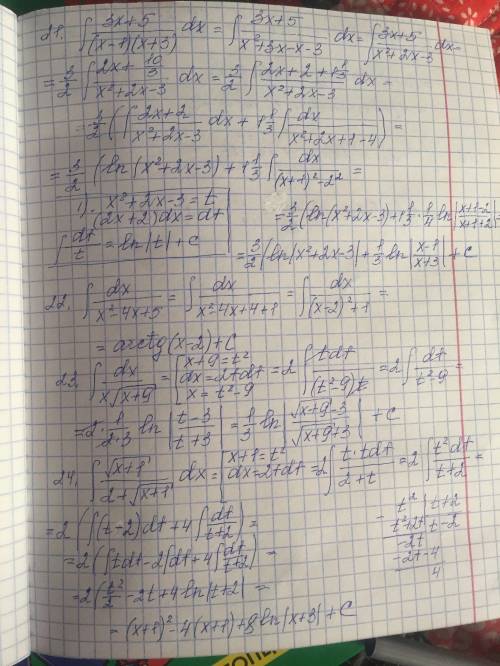 21. ∫ (3x+5)/((x-1)(x+3)) dx = ∫ (3x+5)/(x²+3x-x-3) dx = ∫ (3x+5)/(x²+2x-3) dx =
= 3/2 ∫ (2x + 10/3)/(x²+2x-3) dx = 3/2 ∫ (2x+2+1 1/3)/(x²+2x-3) dx =
= 3/2 (∫ (2x+2)/(x²+2x-3) dx + 1 1/3 ∫ dx/(x²+2x+1-4)) =
= 3/2 (ln(x²+2x-3) + 1 1/3 ∫ dx/((x+1)²-2²) =
1) x²+2x-3=t
(2x+2)dx=dt
= 3/2 (ln(x²+2x-3)+1 1/3 · 1/4 ln|(x+1-2)/(x+1+2)| =
∫ dt/t = ln|t|+C
= 3/2 (ln|x²+2x-3| + 1/3 ln|(x-1)/(x+3)| + C
22. ∫ dx/(x²-4x+5) = ∫ dx/(x²-4x+4+1) = ∫ dx/((x-2)²+1) =
= arctg(x-2)+C
23. ∫ dx/(x√(x+9)) = [x+9=t² dx=2tdt x=t²-9 = 2 ∫ tdt/((t²-9)t) = 2 ∫ dt/(t²-9) =
= 2 · 1/(2·3) ln|(t-3)/(t+3)| = 1/3 ln|(√(x+9)-3)/(√(x+9)+3)| + C
24. ∫ √(x+1)/(2+√(x+1)) dx = [x+1=t² dx=2tdt = 2 ∫ (t·tdt)/(2+t) = 2 ∫ t²dt/(t+2) =
= 2 (∫(t-2)dt + 4∫ dt/(t+2)) =
= 2 (∫tdt - 2∫dt + 4∫ dt/(t+2)) =
= 2 (t²/2 - 2t + 4ln|t+2| =
= (x+1)² - 4(x+1) + 8ln|x+3| + C
- t² | t+2
t²+2t | t-2
-2t
-2t-4
4